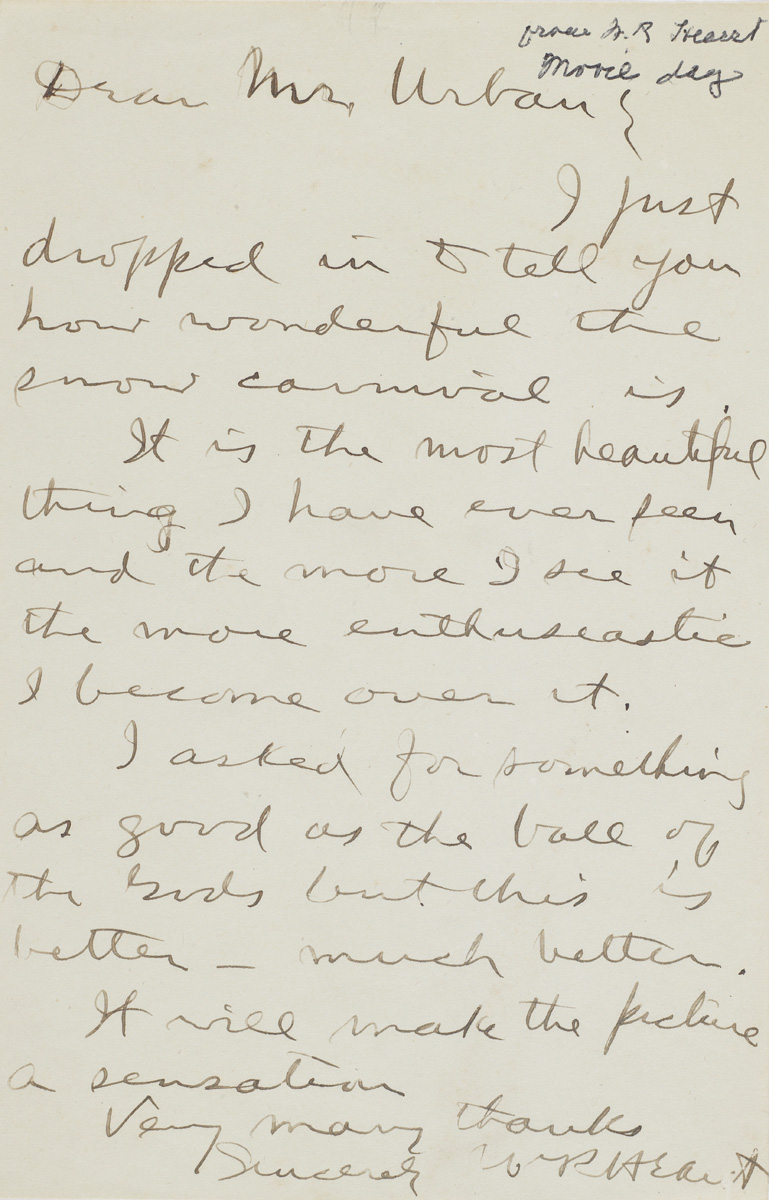 from W. R Hearst
Movie day
Dear Mr. Urban,
I just
dropped in to tell you
how wonderful the
snow carnival is.
It is the most beautiful
thing I have ever seen
and the more I see it
the more enthuseastic
I become over it.
I asked for something
as good as the ball of
the Gods but this is
better – much better.
It will make the picture
a sensation
Very many thanks
Sincerely W R Hearst